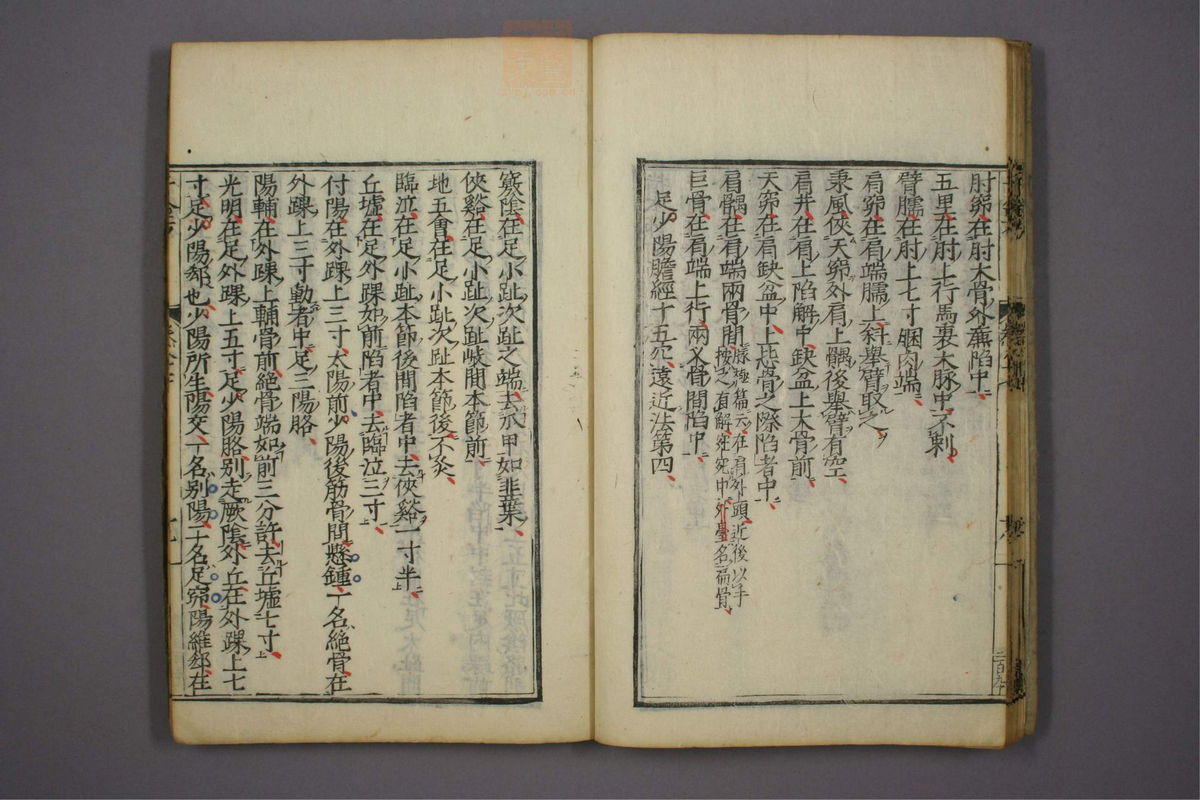 肘窌在肘大骨外廉陷中
五里在肘上行馬裏大脉中不刺
臂臑在肘上七寸䐃肉端
肩窌在肩端臑上斜舉臂取之
秉風俠天窌外肩上髃後舉臂有空
肩井在肩上陷解中缺盆上大骨前
天窌在肩缺盆中上毖骨之際陷者中
肩髃在肩端兩骨間
巨骨在肩端上行兩叉骨間陷中
足少陽膽經十五穴遠近法第四
竅陰在足小趾次趾之端去爪甲如韭葉
俠谿在足小趾次趾岐間本節前
地五會在足小趾次趾本節後不灸
臨泣在足小趾本節後間陷者中去俠谿一寸半
丘墟在足外踝如前陷者中去臨泣三寸
付陽在外踝上三寸太陽前少陽後筋骨間懸鍾一名絶骨在
外踝上三寸動者中足三陽胳
陽輔在外踝上輔骨前絶骨端如前三分許去丘墟七寸
光明在足外踝上五寸足少陽胳别走厥陰外丘在外踝上七
寸足少陽郄也少陽所生陽交一名别陽一名足窌陽維郄在